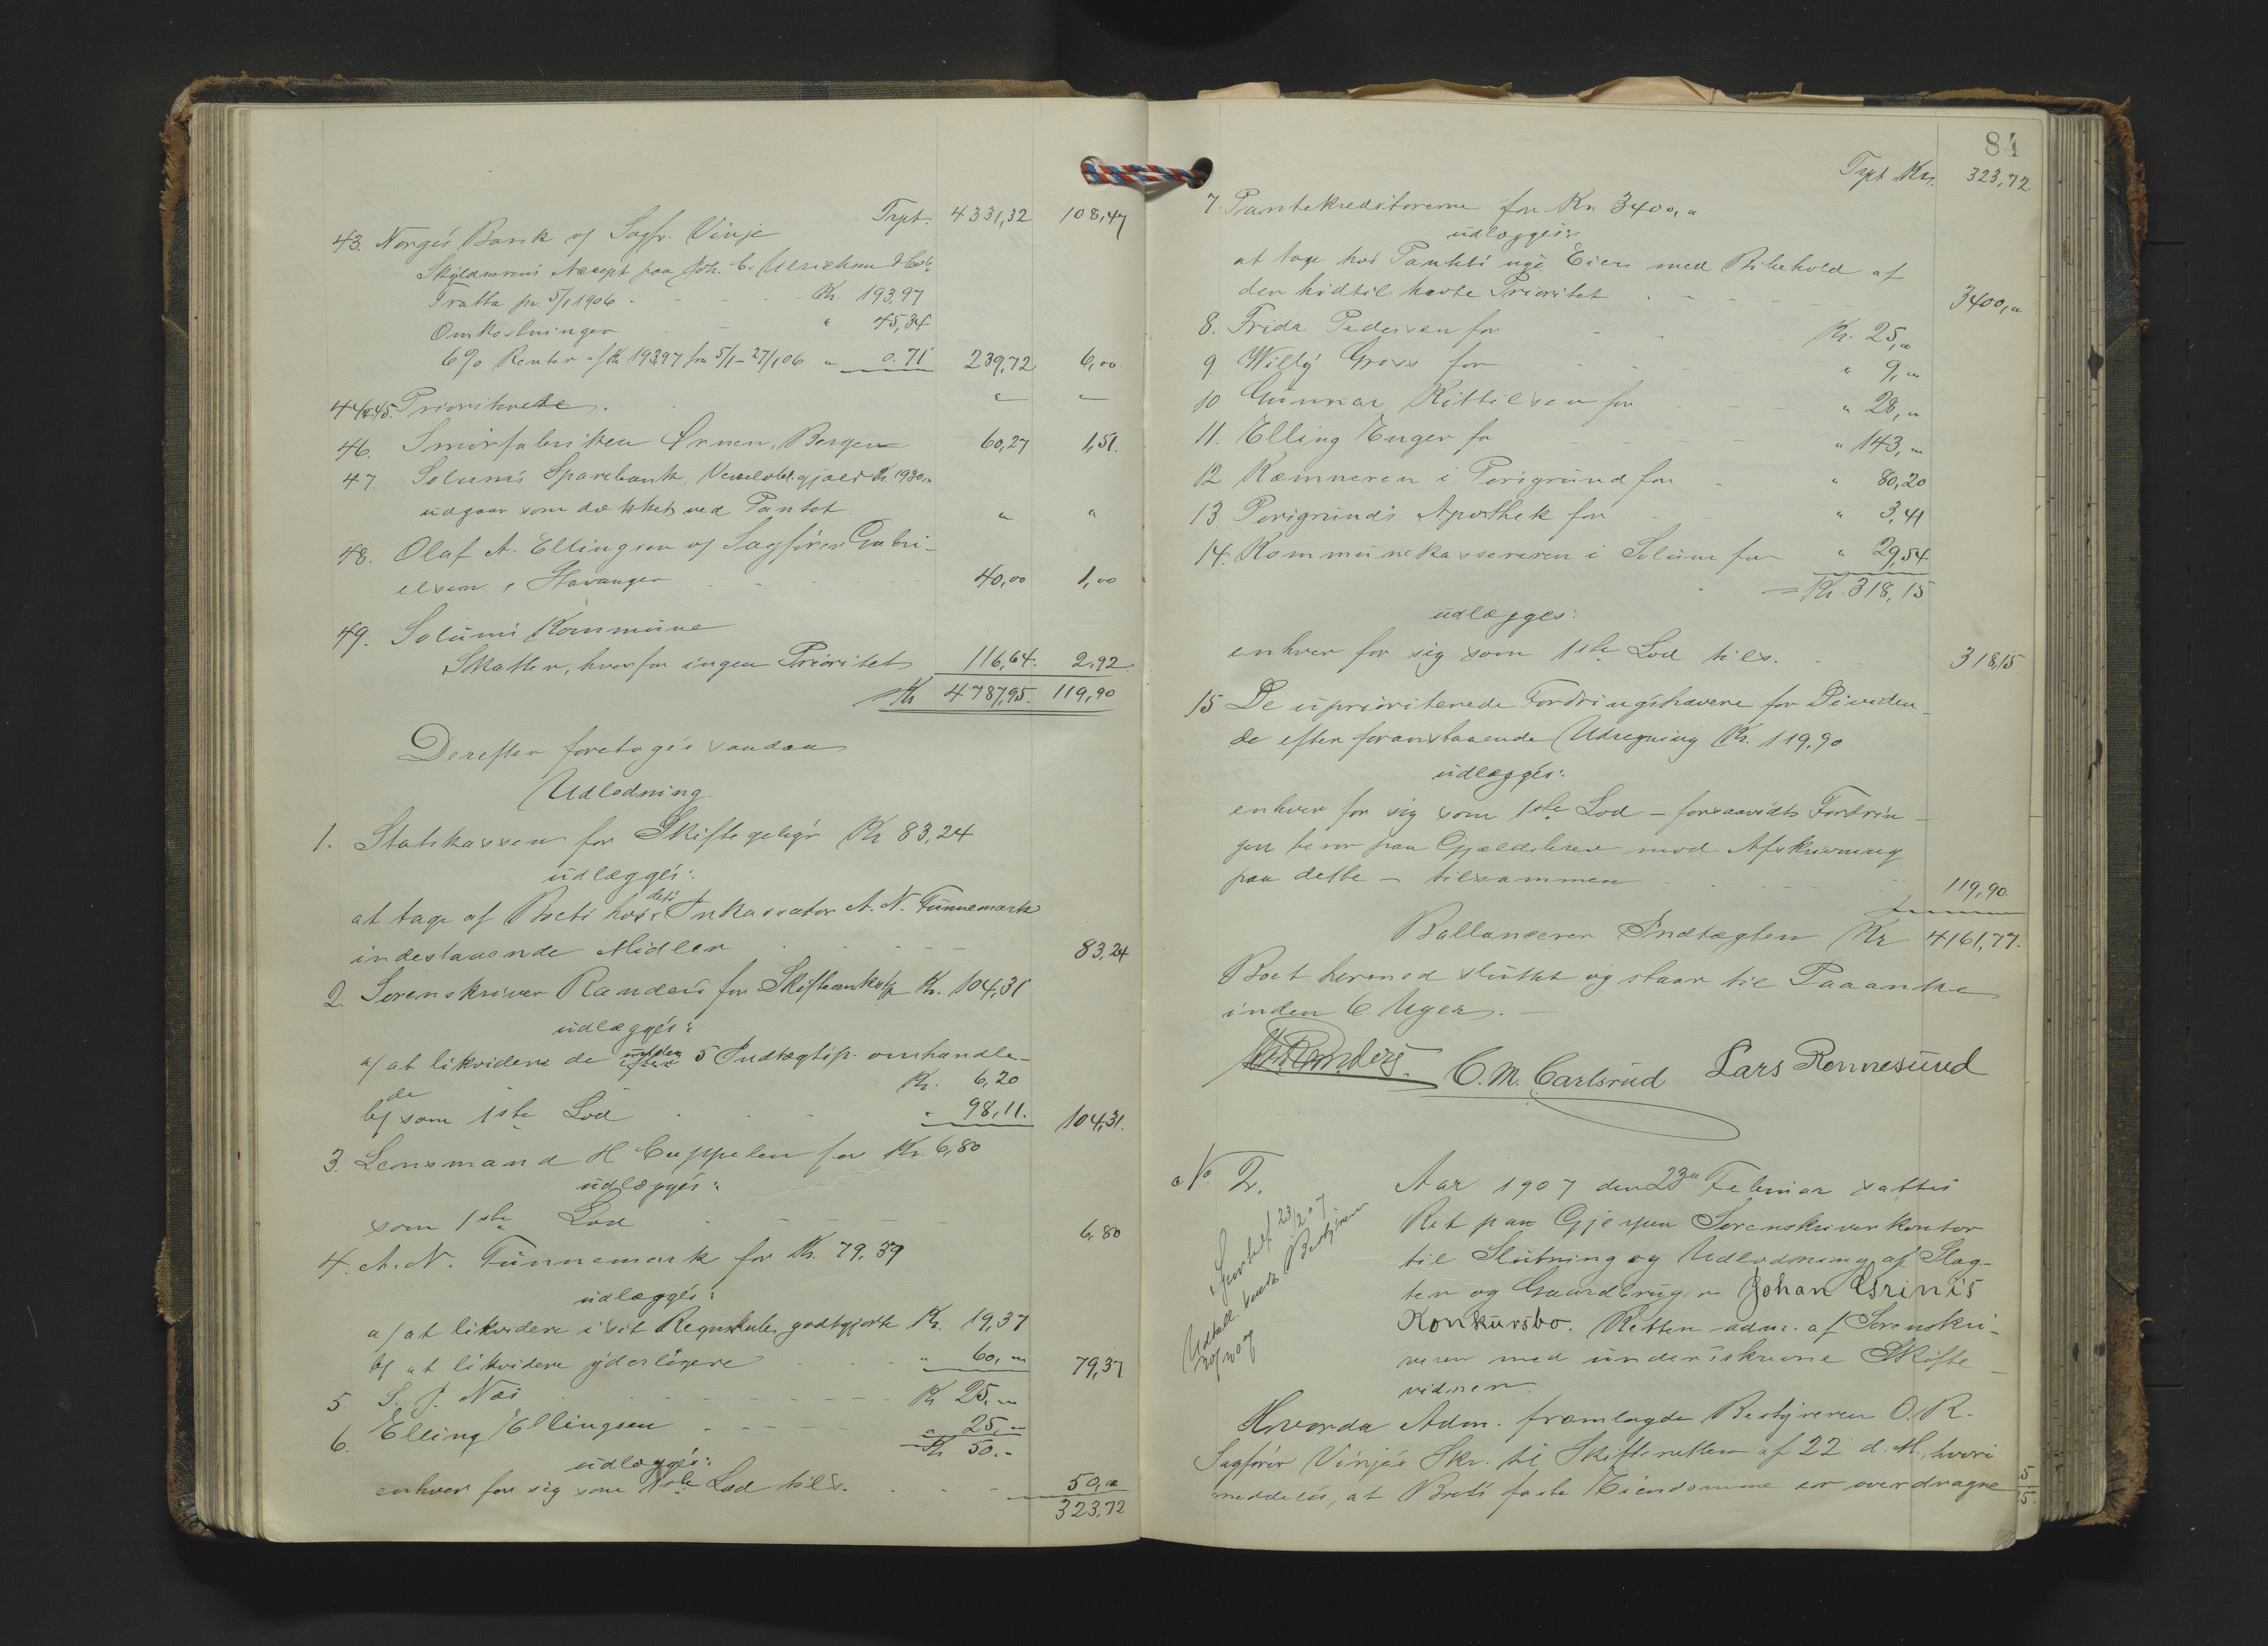 Trpt. 4331,32 108,47
43. Norges Bank v/ Sagfr. Vinje
Skyldnerens Accept paa Joh. C. Ulrichsen & Co's
Tratta pr. 5/1 1906 - Kr. 193,97
Omkostninger " 45,34
6% Renter af Kr 193,97 fra 5/1 - 27/1 06 " 0.71 239,72 6,00
44 & 45. Prioriterede. " "
46. Smörfabriken Örnen, Bergen 60,27 1,51.
47. Solums Sparebank, Vexelobl. gjæld Kr. 1930,"
udgaar som dækket ved Pantet. " "
48. Olaf A. Ellingsen v/ Sagfører Gabri-
elsen, Stavanger 40,00 1,00
49. Solums Kommune
Skatter, hvorfor ingen Prioritet 116,64. 2,92.
Kr 4787,95. 119,90
Derefter foretoges saadan
Udlodning.
1. Statskassen for Skiftegebyr Kr 83,24
udlægges:
at tage af Boets hos dets Inkassator A. N. Tunnemark
indestaaende Midler 83,24
2. Sorenskriver Randers for Skifteomkostn. Kr. 104,31
udlægges:
a/ at likvidere de under 5 Indtægtsp. omhandle-
de Kr. 6,20
b/ som 1ste Lod " 98,11. 104,31.
3. Lensmand H Cappelen for Kr. 6,80
udlægges:
som 1ste Lod 6,80
4. A. N. Tunnemark for Kr. 79,39
udlægges:
a/ at likvidere i sit Regnskab godtgjorte Kr. 19,37
b/ at likvidere yderligere " 60," 79,37
5. S. J. Næs Kr 25,"
6. Elling Ellingsen " 25,"
Kr. 50.-
udlægges:
enhver for sig som 1ste Lod tils. 50,"
323,72
84
Trpt Kr. 323,72
7. Pantekreditorerne for Kr 3400,"
udlægges:
at tage hos Pantets nye Eiere med Bibehold af
den hidtil havte Prioritet 3400,"
8. Frida Pedersen for Kr. 25,"
9. Willy Gross for " 9,"
10 Gunnar Kittilsen for " 28,"
11. Elling Enger for " 143,"
12 Kæmneren i Porsgrund for " 80,20
13 Porsgrunds Apothek for " 3,41
14. Kommunekassereren i Solum for " 29,54
= Kr. 318,15
udlægges:
enhver for sig som 1ste Lod tils. 318,15
15 De uprioriterede Fordringshavere for Dividen-
de efter foranstaaende Udregning Kr. 119,90
udlægges:
enhver for sig som 1ste Lod - forsaavidt Fordrin-
gen beror paa Gjældsbrev mod Afskrivning
paa dette - tilsammen 119,90.
Ballanserer Indtægten Kr 4161,77.
Boet hermed sluttet og staar til Paaanke
inden 6 Uger. -
Randers. C. M. Carlsrud Lars Rønnesund
No. 2. Aar 1907 den 23de Februar sattes
Ret paa Gjerpen Sorenskriverkontor
til Slutning og Udlodning af Slag-
ter og Gaardbruger Johan Grinis
Konkursbo. Retten adm. af Sorenskri-
veren med underskrevne Skifte-
vidner.
23/2 07.
Bestyreren
Hvorda Adm. fremlagde Bestyreren O. R.-
Sagfører Vinjes Skr. til Skifteretten af 22 d. M., hvori
meddeles, at Boets faste Eiendomme er overdragne